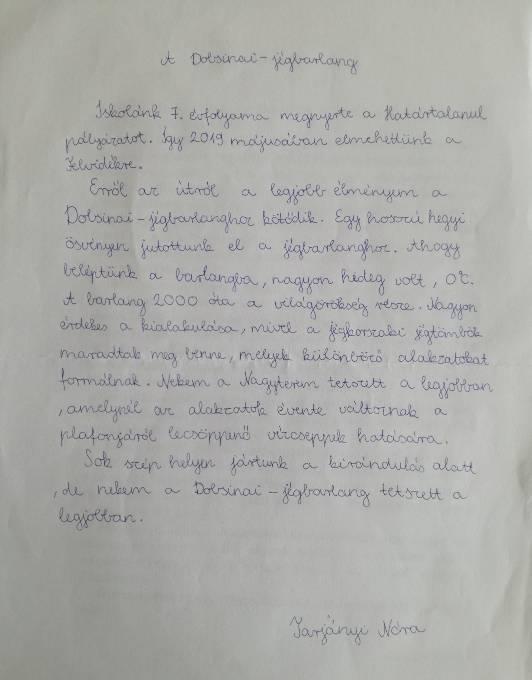 A Dobsinai-jégbarlang
Iskolánk 7. évfolyama megnyerte a Határtalanul
pályázatot. Így 2019 májusában elmehettünk a
Felvidékre.
Erről az útról a legjobb élményem a
Dobsinai-jégbarlanghoz kötődik. Egy hosszú hegyi
ösvényen jutottunk el a jégbarlanghoz. Ahogy
beléptünk a barlangba, nagyon hideg volt, 0°C.
A barlang 2000 óta a világörökség része. Nagyon
érdekes a kialakulása, mivel a jégkorszaki jégtömbök
maradtak meg benne, melyek különböző alakzatokat
formálnak. Nekem a Nagyterem tetszett a legjobban
, amelynél az alakzatok évente változnak a
plafonjáról lecsöppenő vízcseppek hatására.
Sok szép helyen jártunk a kirándulás alatt
, de nekem a Dobsinai-jégbarlang tetszett a
legjobban.
Tarjányi Nóra